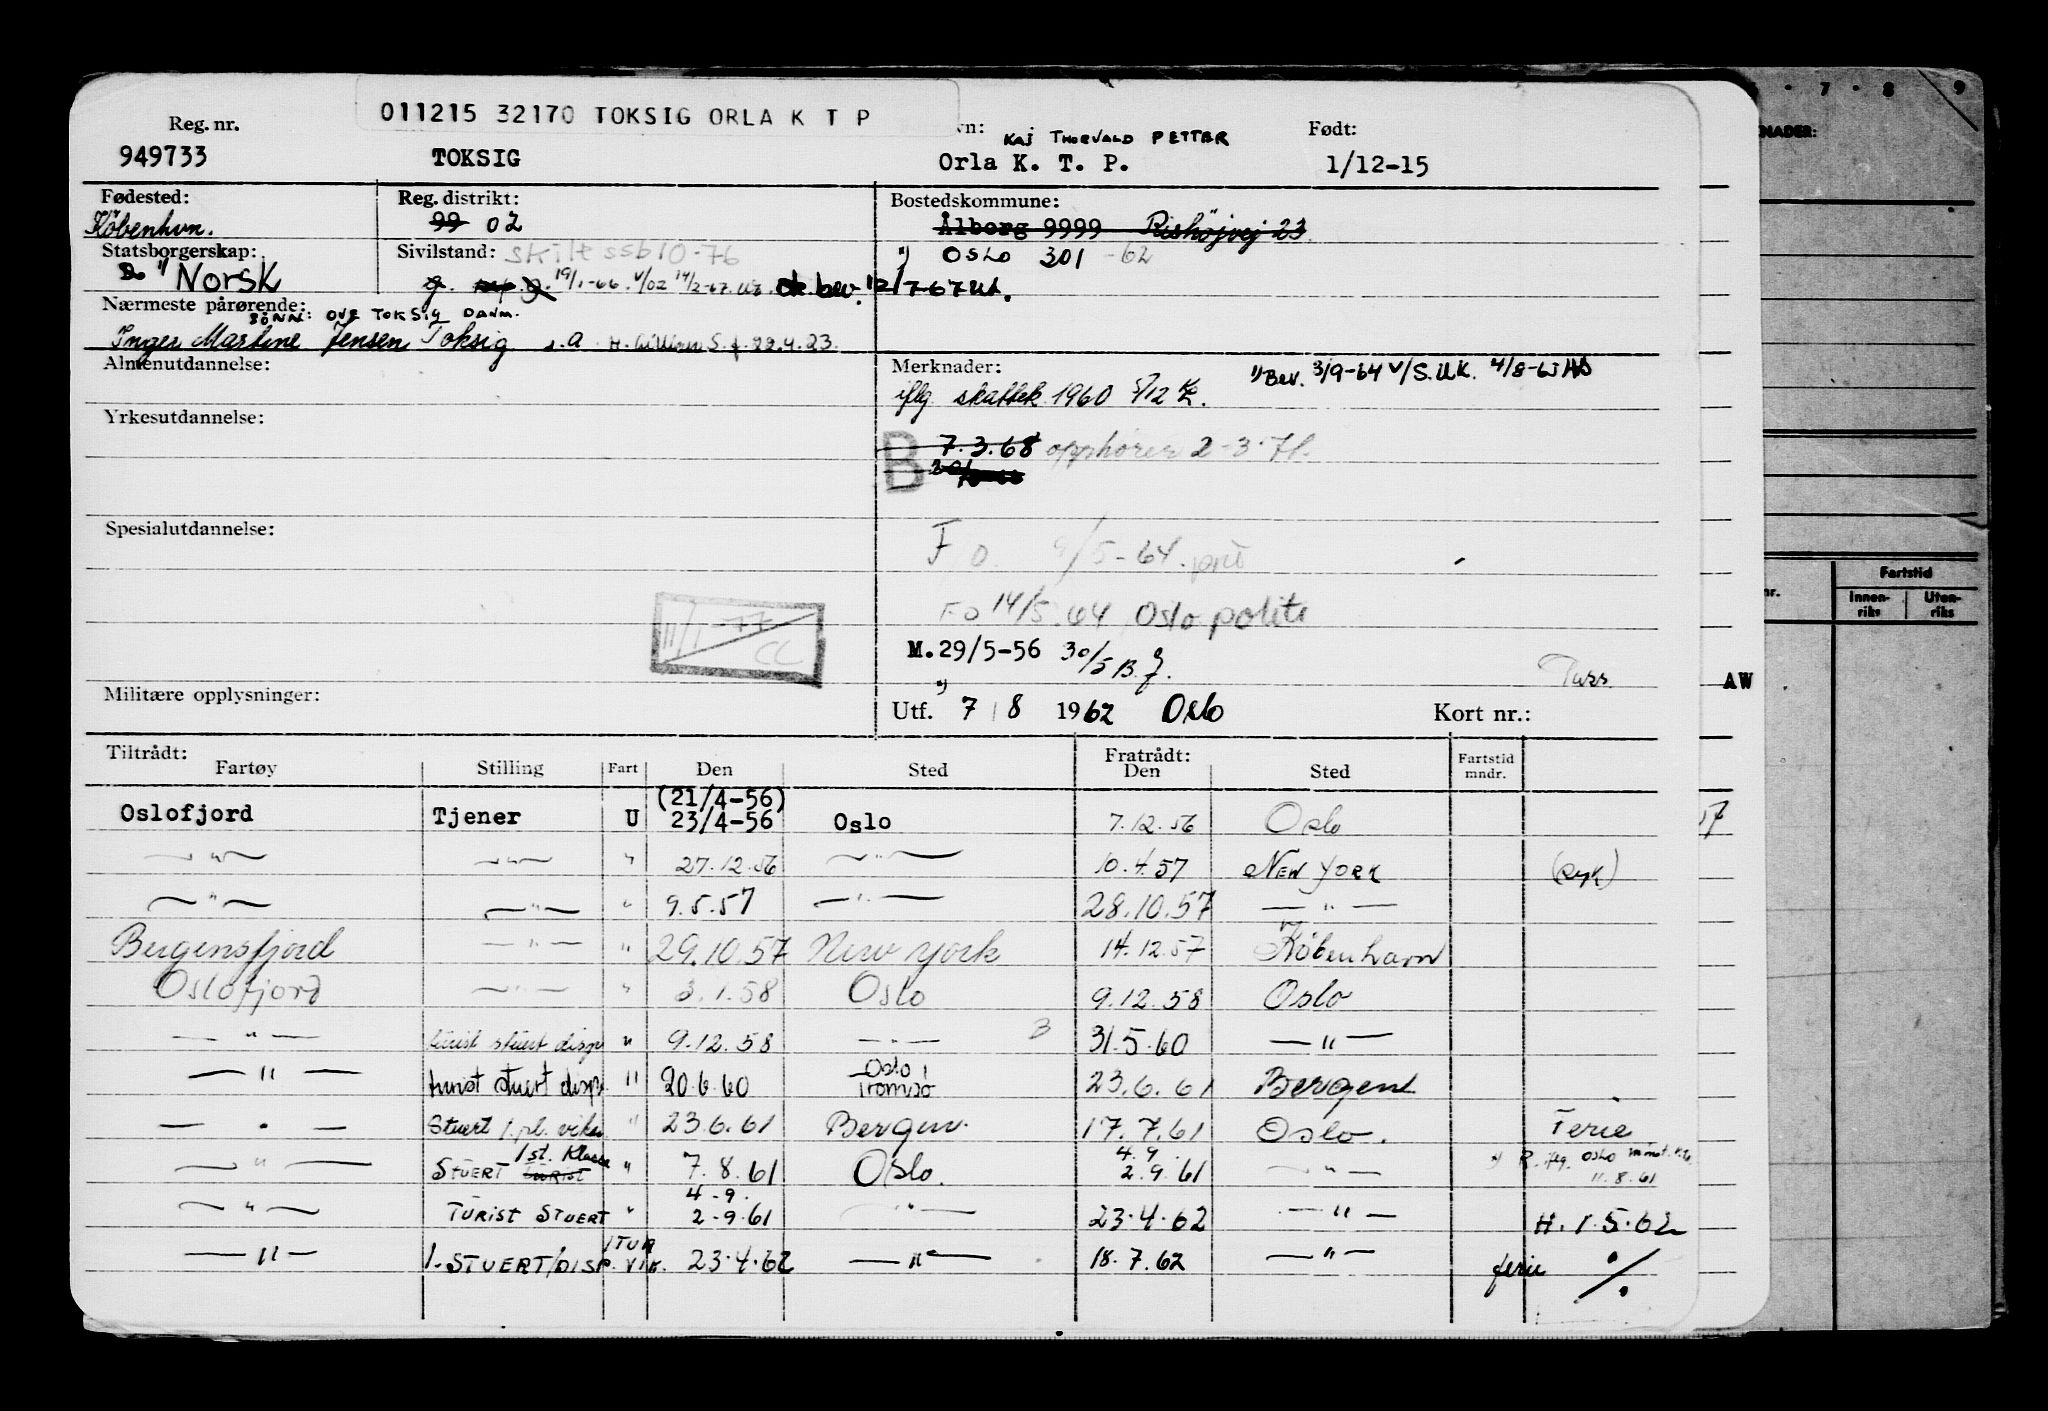 011215 32170 TOKSIG ORLA K T P
Reg. nr. vn: KAJ THORVALD PETTER Født:
949733 TOKSIG Orla K. T. P. 1/12-15
Fødested: Reg. distrikt: Bostedskommune:
Københvn. 99 02 Ålborg 9999 Rishöjvej 23
Statsborgerskap: Sivilstand: skilt ssb 10-76 OSLO 301 -62
Norsk g. 19/1-66 bev.
Nærmeste pårørende:
SÖNN: OVE TOKSIG DANM.
Inger Martine Jensen Toksig s.a f. 22.4.23.
Almenutdannelse: Merknader: 1) Bev. 3/9-64 v/S.U.K. 4/8-65
iflg skattek. 1960 5/12
Yrkesutdannelse:
B 7.3.68 opphører 2-3-71.
Spesialutdannelse:
F.O. 9/5-64.
11/1-77
CC
FO 14/5.64 Oslo politi
M. 29/5-56 30/5 B.
Militære opplysninger: Utf. 7/8 1962 Oslo Kort nr.:
AW
Tiltrådt: Fratrådt:
Fartøy Stilling Fart Den Sted Den Sted Fartstid mndr.
Oslofjord Tjener U (21/4-56) 23/4-56 Oslo 7.12.56 Oslo
— " — — " — " 27.12.56 — " — 10.4.57 NEW YORK (syk)
— " — — " — " 9.5.57 — " — 28.10.57 — " —
Bergensfjord — " — " 29.10.57 New York 14.12.57 København
Oslofjord — " — " 3.1.58 Oslo 9.12.58 Oslo
— " — turist stuert disp " 9.12.58 — " — B 31.5.60 — " —
— " — turist stuert disp. " 20.6.60 Oslo / Tromsø 23.6.61 Bergen
— " — Stuert 1. pl. vikar " 23.6.61 Bergen. 17.7.61 Oslo. Ferie
— " — STUERT TURIST 1st. Klasse " 7.8.61 Oslo. 4.9. 2.9.61 — " — OSLO 11.8.61
— " — TURIST STUERT " 4-9. 2-9.61 — " — 23.4.62 — " — H. 1.5.62
— " — 1. STUERT/DISP. VIK. 1 TUR 23.4.62 — " — 18.7.62 — " — ferie
7 8 9
NADER:
Fartstid
nr. Innenriks Utenriks